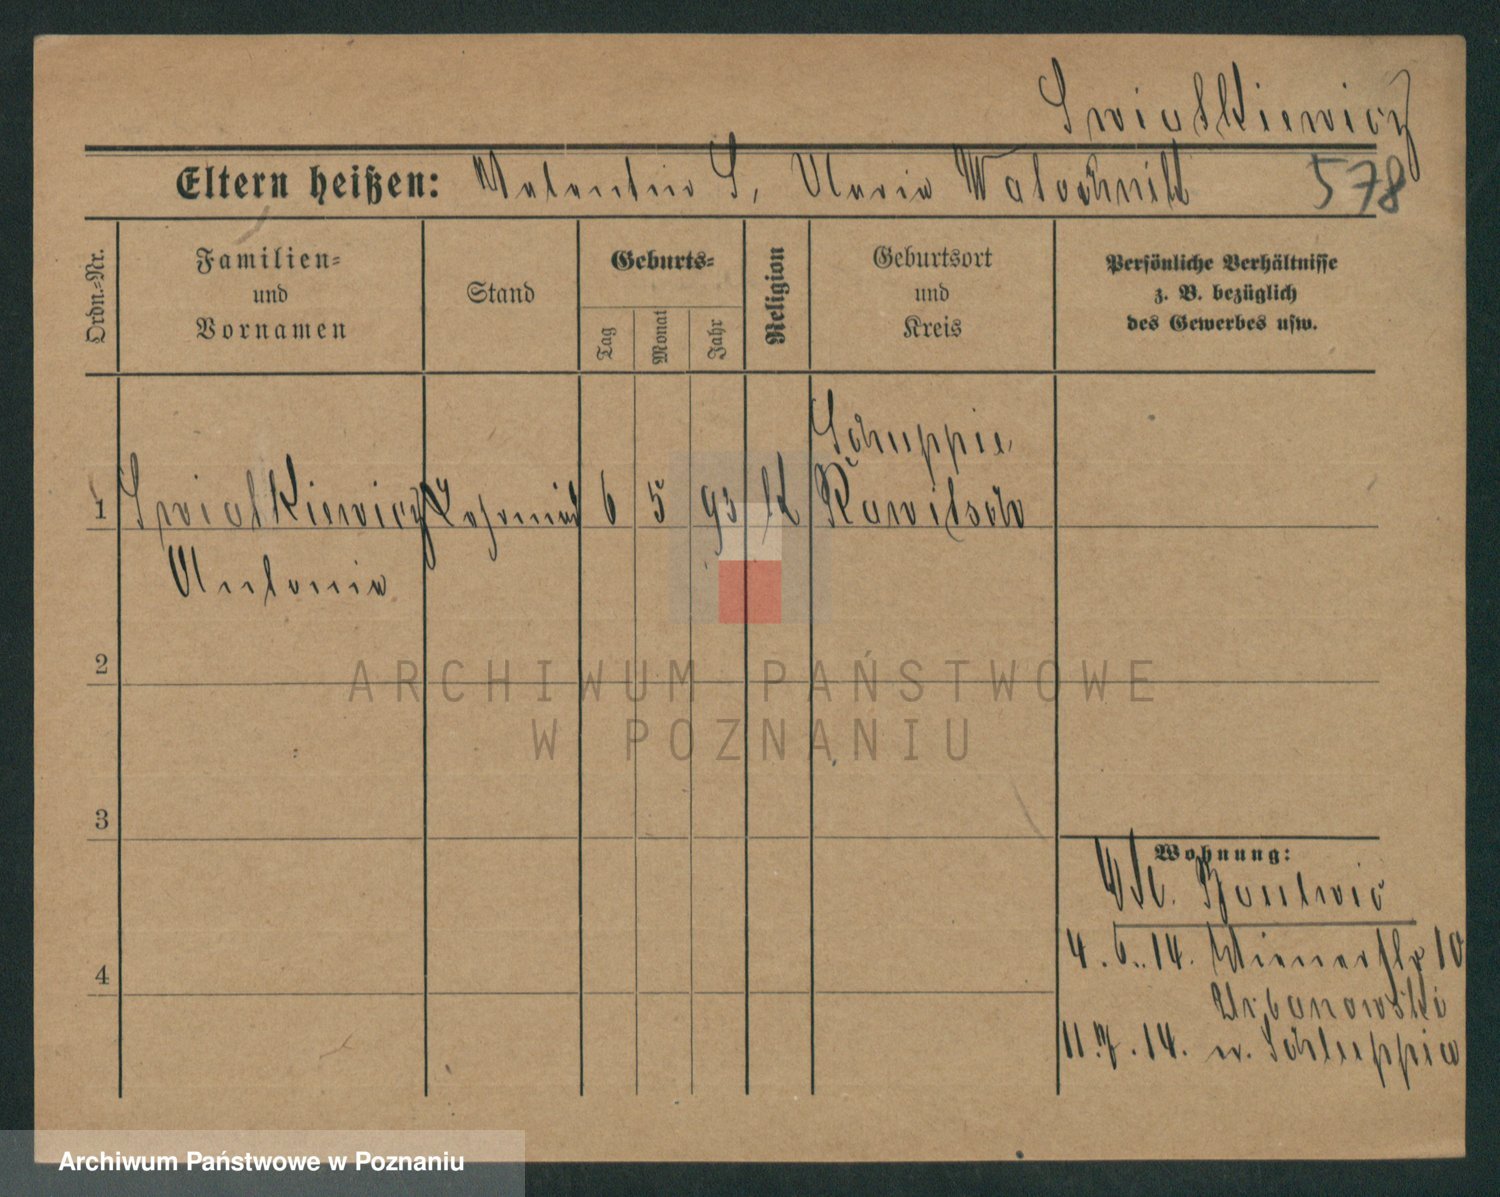 Swiatkiewicz
Eltern heißen: Valentin S, Maria Walochnik 578
Ordn.=Nr.
Familien=
und
Vornamen
Stand
Geburts=
Tag
Monat
Jahr
Religion
Geburtsort
und
Kreis
Persönliche Verhältnisse
z. B. bezüglich
des Gewerbes usw.
1 Swiatkiewicz 6 5 93 k Rawitsch
Antonie
2
3
4
Wohnung:
4.6.14. Wienerstr 10
Urbanowski
11.7.14. n. Schluppia
ARCHIWUM PAŃSTWOWE
W POZNANIU
Archiwum Państwowe w Poznaniu